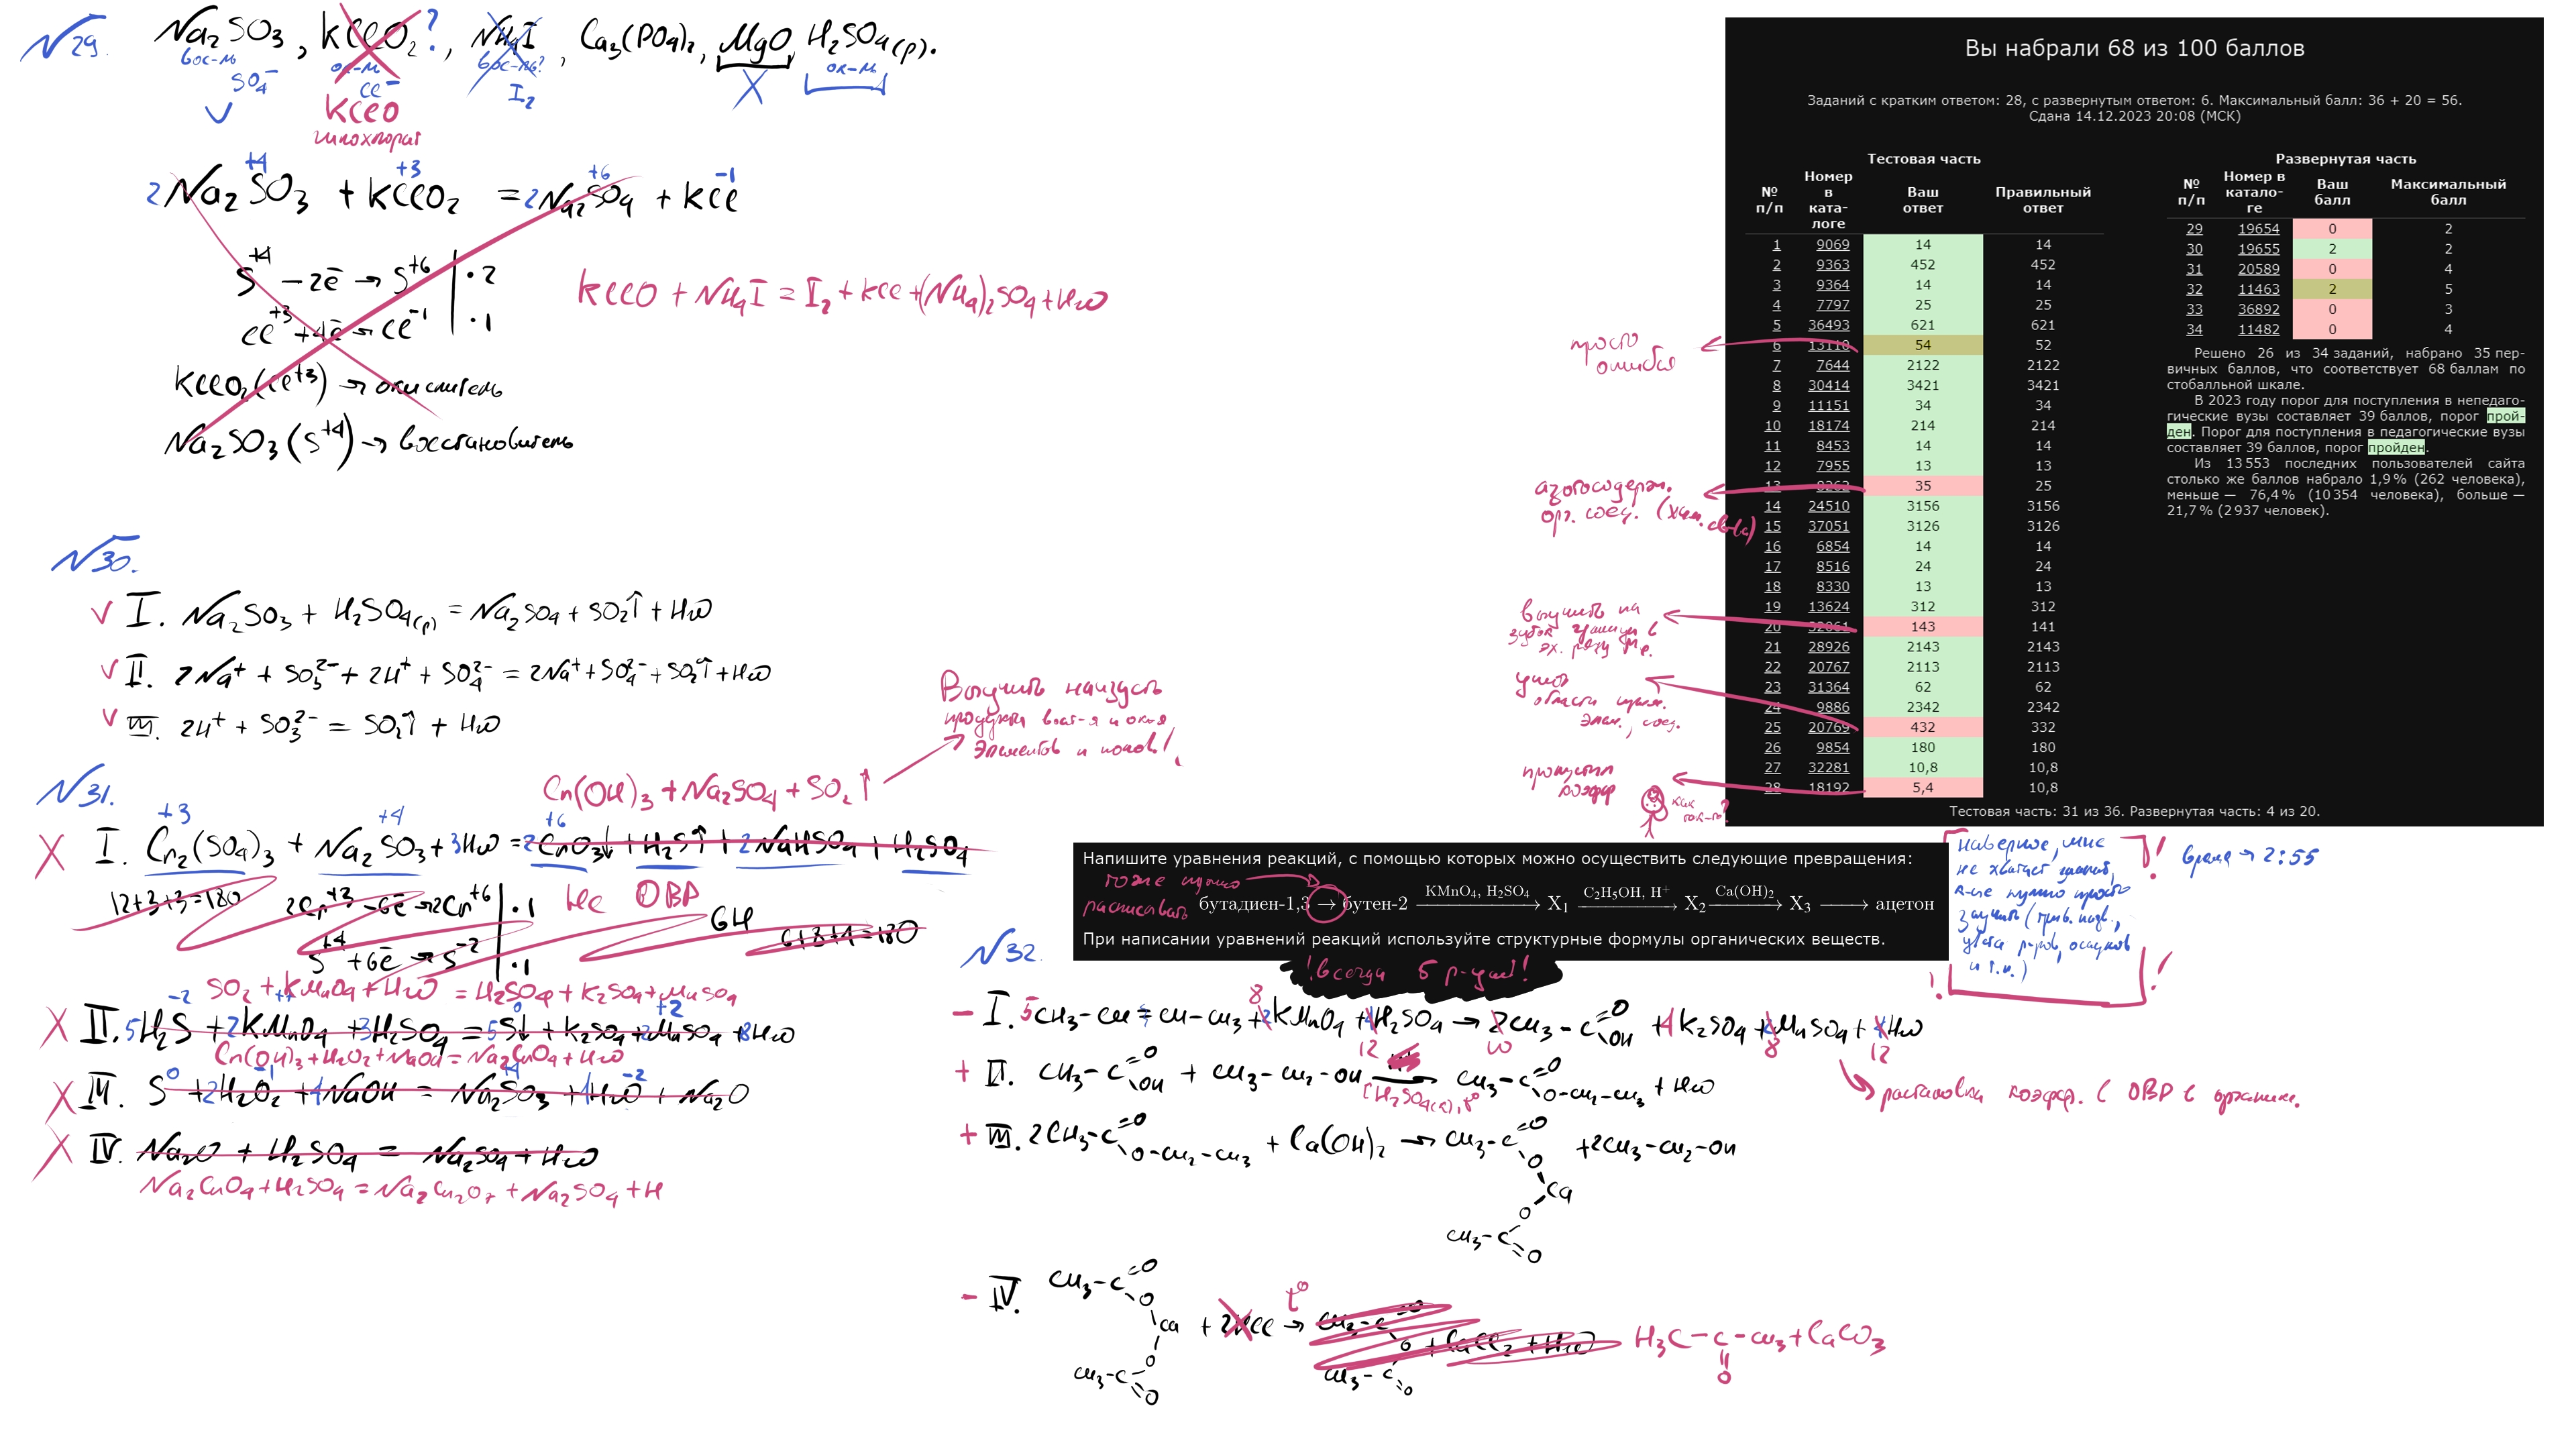 N29. Na₂SO₃, KClO₂?, NH₄I, Ca₃(PO₄)₂, MgO, H₂SO₄(р).
вос-ль ок-ль вос-ль? ок-ль
SO₄⁻ Cl⁻ I₂
KClO
гипохлорат
2Na₂SO₃ + KClO₂ = 2Na₂SO₄ + KCl
+4 +3 +6 -1
S⁺⁴ - 2ē → S⁺⁶ | ·2
Cl⁺³ + 4ē → Cl⁻¹ | ·1
KClO₂(Cl⁺³) → окислитель
Na₂SO₃(S⁺⁴) → восстановитель
KClO + NH₄I = I₂ + KCl + (NH₄)₂SO₄ + H₂O
N30.
I. Na₂SO₃ + H₂SO₄(р) = Na₂SO₄ + SO₂↑ + H₂O
II. 2Na⁺ + SO₃²⁻ + 2H⁺ + SO₄²⁻ = 2Na⁺ + SO₄²⁻ + SO₂↑ + H₂O
III. 2H⁺ + SO₃²⁻ = SO₂↑ + H₂O
Выучить наизусть
продукты восст-я и окис-я
элементов и ионов!
N31.
Cr(OH)₃ + Na₂SO₄ + SO₂↑
I. Cr₂(SO₄)₃ + Na₂SO₃ + 3H₂O = 2CrO₃↓ + H₂S↑ + 2NaHSO₄ + H₂SO₄
+3 +4 +6
12+3+3=180
2Cr⁺³ - 6ē → 2Cr⁺⁶ | ·1
S⁺⁴ + 6ē → S⁻² | ·1
Не ОВР
SO₂ + KMnO₄ + H₂O = H₂SO₄ + K₂SO₄ + MnSO₄
II. 5H₂S + 2KMnO₄ + 3H₂SO₄ = 5S↓ + K₂SO₄ + 2MnSO₄ + 8H₂O
Cr(OH)₃ + H₂O₂ + NaOH = Na₂CrO₄ + H₂O
III. S⁰ + 2H₂O₂ + 4NaOH = Na₂SO₃ + 4H₂O + Na₂O
IV. Na₂O + H₂SO₄ = Na₂SO₄ + H₂O
Na₂CrO₄ + H₂SO₄ = Na₂Cr₂O₇ + Na₂SO₄ + H
Вы набрали 68 из 100 баллов
Заданий с кратким ответом: 28, с развернутым ответом: 6. Максимальный балл: 36 + 20 = 56.
Сдана 14.12.2023 20:08 (МСК)
Тестовая часть
№ п/п Номер в ката-логе Ваш ответ Правильный ответ
1 9069 14 14
2 9363 452 452
3 9364 14 14
4 7797 25 25
5 36493 621 621
6 13110 54 52
7 7644 2122 2122
8 30414 3421 3421
9 11151 34 34
10 18174 214 214
11 8453 14 14
12 7955 13 13
13 8262 35 25
14 24510 3156 3156
15 37051 3126 3126
16 6854 14 14
17 8516 24 24
18 8330 13 13
19 13624 312 312
20 32061 143 141
21 28926 2143 2143
22 20767 2113 2113
23 31364 62 62
24 9886 2342 2342
25 20769 432 332
26 9854 180 180
27 32281 10,8 10,8
28 18192 5,4 10,8
Развернутая часть
№ п/п Номер в катало-ге Ваш балл Максимальный балл
29 19654 0 2
30 19655 2 2
31 20589 0 4
32 11463 2 5
33 36892 0 3
34 11482 0 4
Решено 26 из 34 заданий, набрано 35 пер-
вичных баллов, что соответствует 68 баллам по
стобалльной шкале.
В 2023 году порог для поступления в непедаго-
гические вузы составляет 39 баллов, порог прой-
ден. Порог для поступления в педагогические вузы
составляет 39 баллов, порог пройден.
Из 13 553 последних пользователей сайта
столько же баллов набрало 1,9 % (262 человека),
меньше — 76,4 % (10 354 человека), больше —
21,7 % (2 937 человек).
Тестовая часть: 31 из 36. Развернутая часть: 4 из 20.
просто
ошибся
азотосодерж.
орг. соед. (хим. св-ва)
выучить на
зубок
эх. ряду Me.
области прим.
элем., соед.
пропустил
коэфф
как
так-то?
Напишите уравнения реакций, с помощью которых можно осуществить следующие превращения:
тоже нужно
расписывать
бутадиен-1,3 → бутен-2 KMnO₄, H₂SO₄ → X₁ C₂H₅OH, H⁺ → X₂ Ca(OH)₂ → X₃ → ацетон
При написании уравнений реакций используйте структурные формулы органических веществ.
!всегда 5 р-ций!
наверное, мне
не хватает знаний,
мне нужно просто
заучить (трив. назв.,
цвета р-ров, осадков
и т.п.)
время → 2:55
N32.
I. 5CH₃-CH=CH-CH₃ + 8KMnO₄ + 12H₂SO₄ → 10CH₃-C=O OH + 4K₂SO₄ + 8MnSO₄ + 12H₂O
II. CH₃-C=O OH + CH₃-CH₂-OH → CH₃-C=O O-CH₂-CH₃ + H₂O
[H₂SO₄(к), t°
расстановка коэфф. в ОВР в органике.
III. 2CH₃-C=O O-CH₂-CH₃ + Ca(OH)₂ → CH₃-C=O O Ca O CH₃-C=O + 2CH₃-CH₂-OH
IV. CH₃-C=O O Ca O CH₃-C=O + 2HCl t° → CH₃-C=O O CH₃-C=O + CaCl₂ + H₂O H₃C-C-CH₃ + CaCO₃
O